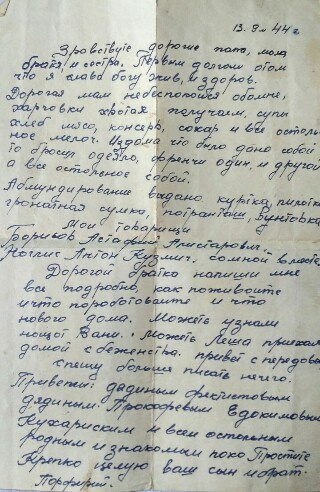 13. 9 - 44 г.
Здравствуйте дорогие папа, мама
братя и сестра. Первым долгом отом
что я слава богу жив, и здоров.
Дорогая мам небеспокойся обомне,
харчовки хротая получаем, супы
хлеб мясо, консерв, сахар и все осталь
ное мелоч. Издома что было дано собой
то бросил одеяло, френчи один и другой
а все остольное собой.
Абмундирование выдано куртка, пилотка
гронатная сумка, потронташ, винтовка
Мои товарищи
Борисов Астафий Аристарович.
Кузмич. сомной вместе
Дорогой братка напиши мне
все подробно, как поживаите
ичто поработоваите и что
нового дома. Можете узнали
Вани. Можеть Леша приехал
домой с беженства. привет с передовой
спешу больше писать нечего.
Приветы: дядиным
дядиным: Прокофевым Евдокимовым
и всем остольным
родным изнакомым поко Простите
Крепко целую ваш сын ибрат.
Порфирий.